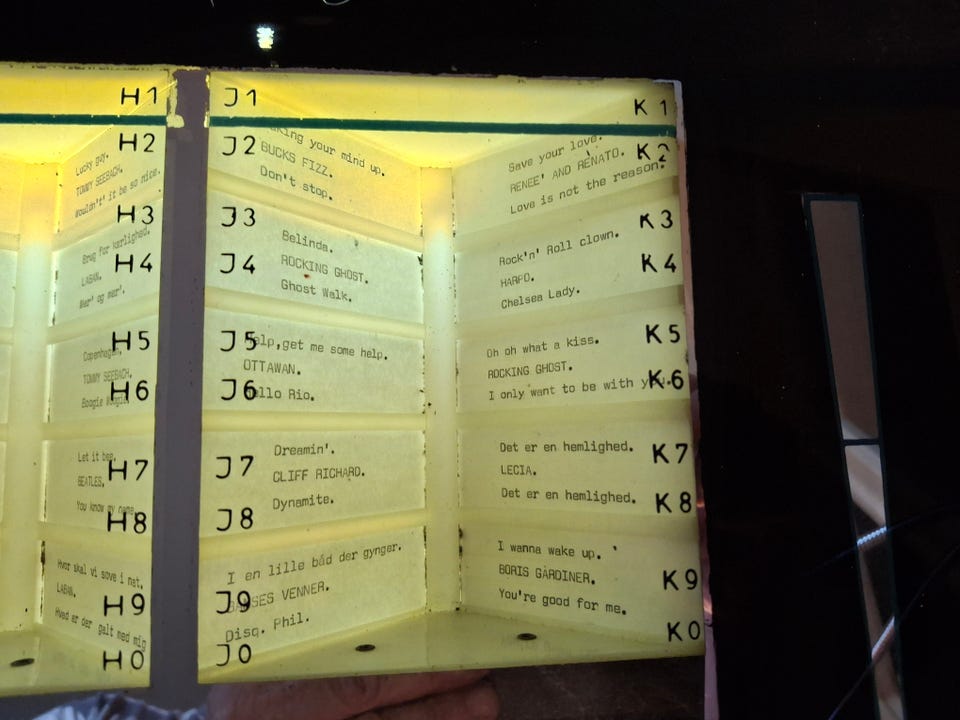 H1
H2
Lucky guy.
TOMMY SEEBACH.
Wouldn't' it be so nice.
H3
Brug for kærlighed.
H4
LABAN.
Mer' og mer'.
H5
Copenhagen.
TOMMY SEEBACH.
H6
Boogie Woogie.
Let it be.
H7
BEATLES.
You know my name.
H8
Hvor skal vi sove i nat.
LABAN.
H9
Hvad er der galt med mig
H0
J1
J2
your mind up.
BUCKS FIZZ.
Don't stop.
J3
Belinda.
J4
ROCKING GHOST.
Ghost Walk.
J5
Help,get me some help.
OTTAWAN.
J6
Hello Rio.
Dreamin'.
J7
CLIFF RICHARD.
Dynamite.
J8
I en lille båd der gynger.
J9
VENNER.
Disq. Phil.
J0
K1
Save your love.
K2
RENEE' AND RENATO.
Love is not the reason?
K3
Rock'n' Roll clown.
K4
HARPO.
Chelsea Lady.
K5
Oh oh what a kiss.
ROCKING GHOST.
K6
I only want to be with you.
K7
Det er en hemlighed.
LECIA.
K8
Det er en hemlighed.
I wanna wake up.
K9
BORIS GARDINER.
You're good for me.
K0